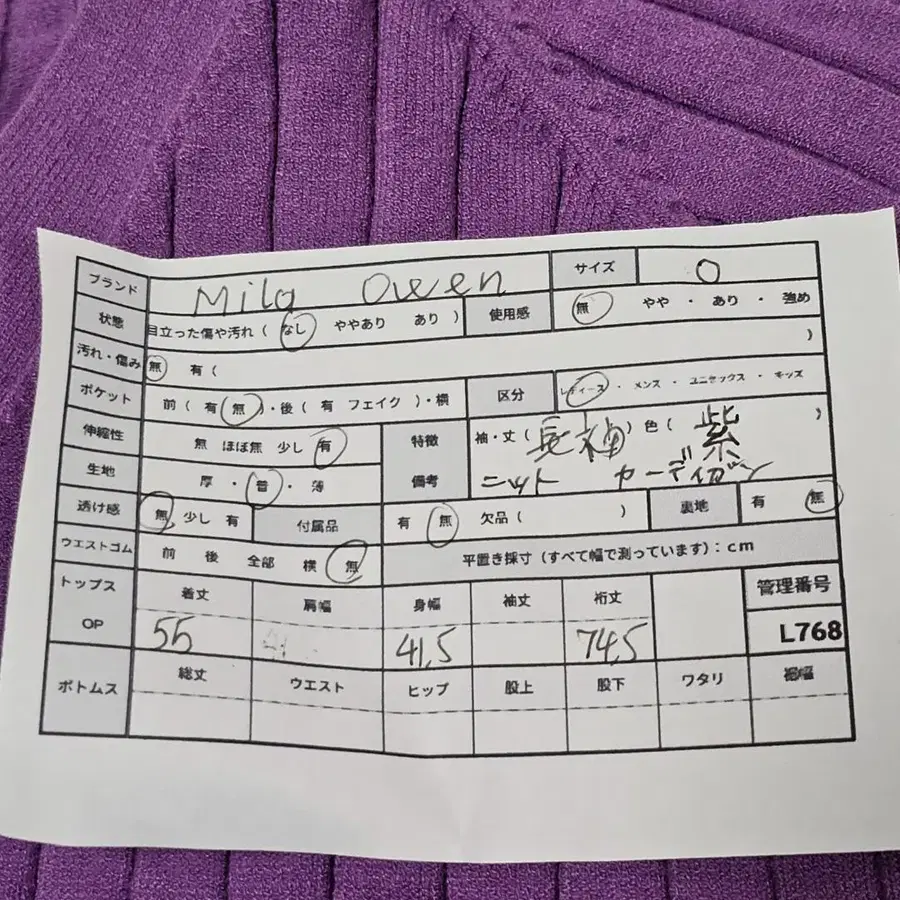 ブランド Mila Owen サイズ 0
状態 目立った傷や汚れ ( なし ややあり あり ) 使用感 無 やや ・ あり ・ 強め
汚れ・傷み 無 有 ( )
ポケット 前 ( 有 無 )・後 ( 有 フェイク )・横 区分 レディース ・ メンズ ・ ユニセックス ・ キッズ
伸縮性 無 ほぼ無 少し 有 特徴 袖・丈 ( 長袖 ) 色 ( 紫 )
生地 厚 ・ 普 ・ 薄 備考 ニット カーディガン
透け感 無 少し 有 付属品 有 無 欠品 ( ) 裏地 有 無
ウエストゴム 前 後 全部 横 無 平置き採寸 (すべて幅で測っています) : cm
トップス 着丈 肩幅 身幅 袖丈 裄丈 管理番号
OP 55 41.5 74.5 L768
ボトムス 総丈 ウエスト ヒップ 股上 股下 ワタリ 裾幅